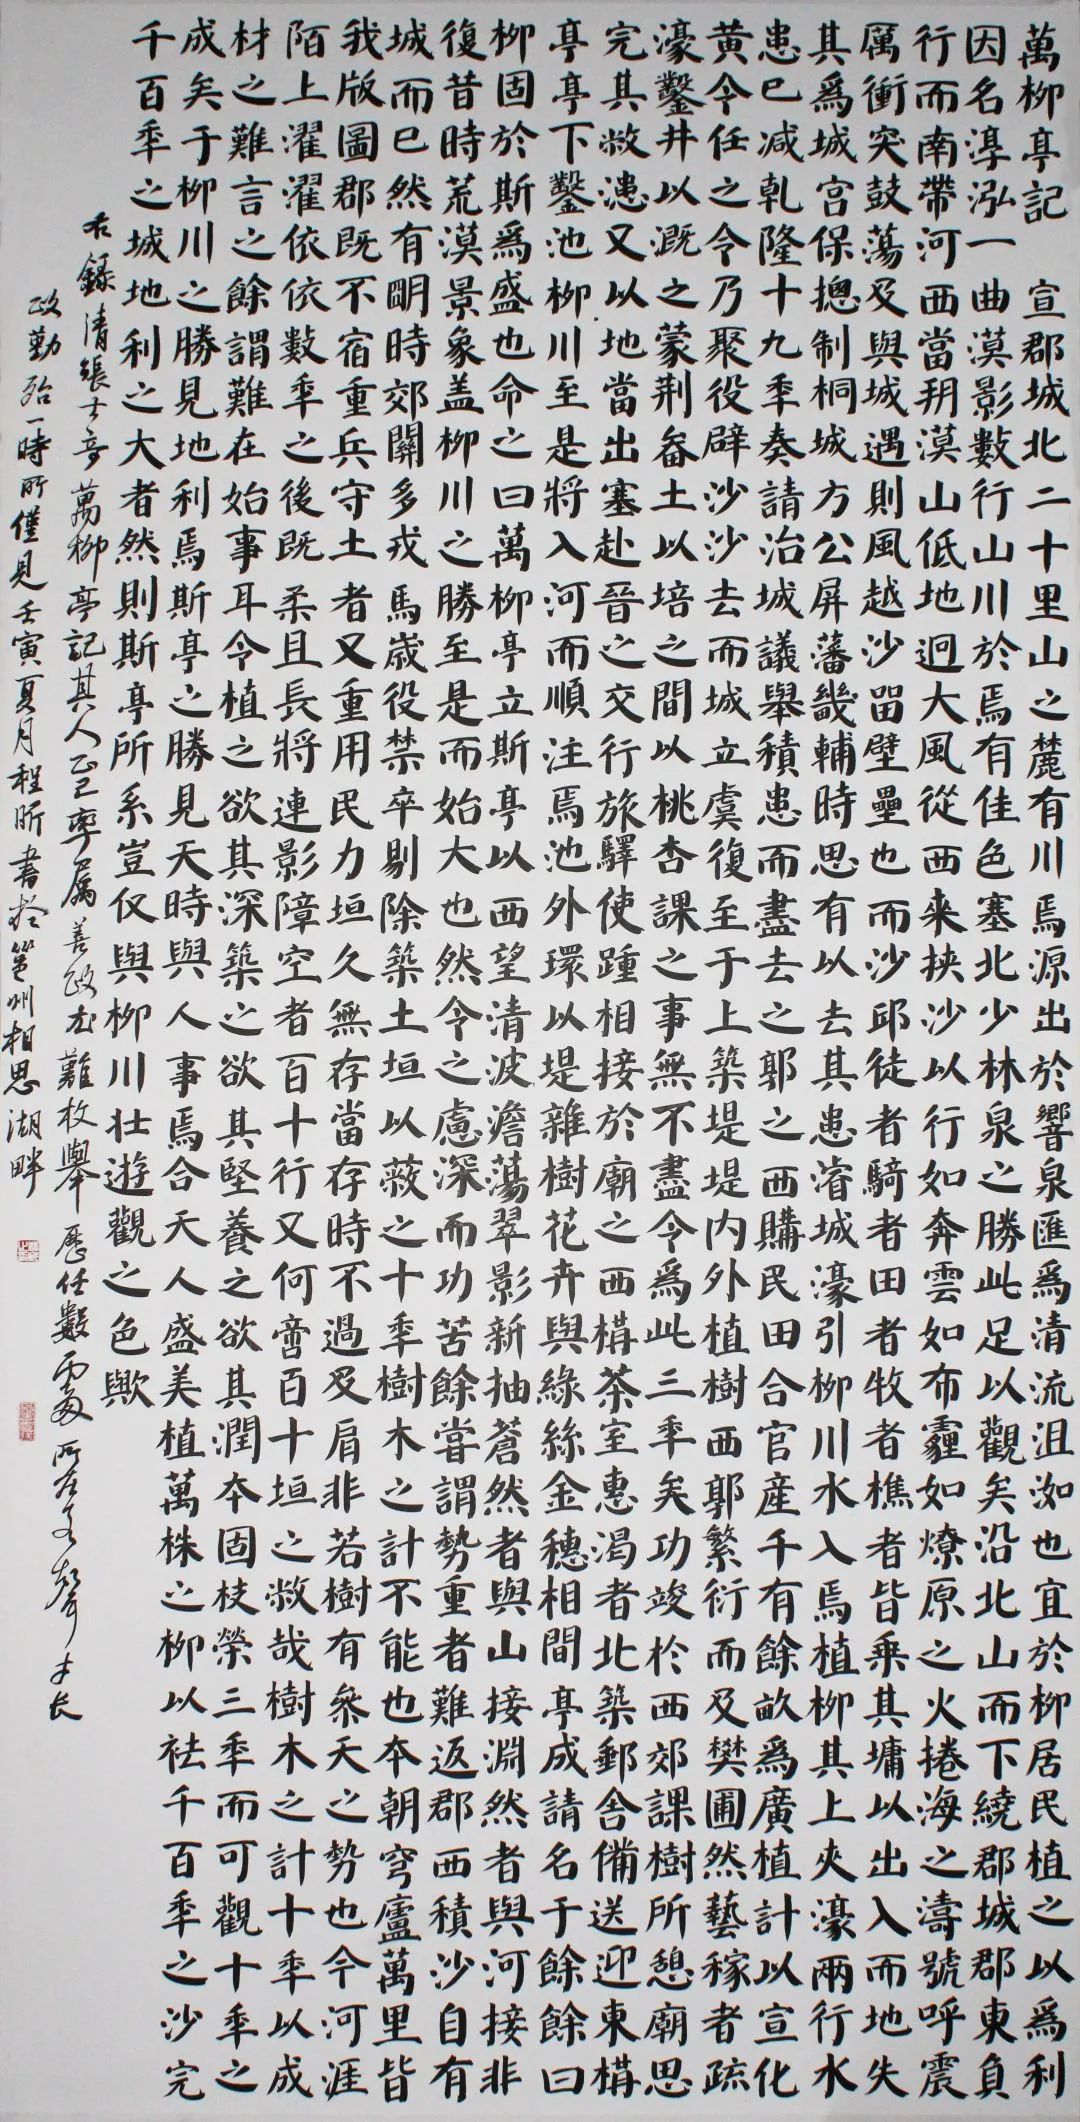 萬柳亭記　宣郡城北二十里山之麓有川焉源出於響泉匯爲清流沮洳也宜於柳居民植之以爲利
因名渟泓一曲漠影數行山川於焉有佳色塞北少林泉之勝此足以觀矣沿北山而下繞郡城郡東負
行而南帶河西當朔漠山低地迥大風從西来挾沙以行如奔雲如布霾如燎原之火捲海之濤號呼震
厲衝突鼓蕩及與城遇則風越沙留壁壘也而沙邱徒者騎者田者牧者樵者皆乗其墉以出入而地失
其爲城宫保摠制桐城方公屏藩畿輔時思有以去其患濬城濠引柳川水入焉植柳其上夾濠兩行水
患已减乹隆十九秊奏請治城議舉積患而盡去之郭之西購民田合官産千有餘畝爲廣植計以宣化
黄令任之令乃聚役辟沙沙去而城立虞復至于上築堤堤内外植樹西郭繁衍而及樊圃然藝稼者疏
濠鑿井以溉之蒙荆畚土以培之間以桃杏課之事無不盡今爲此三秊矣功竣於西郊課樹所憩廟思
完其敝漶又以地當出塞赴晉之交行旅驛使踵相接於廟之西構茶室惠渴者北築郵舍備送迎東構
亭亭下鑿池柳川至是將入河而順注焉池外環以堤雜樹花卉與綠絲金穗相間亭成請名于餘餘曰
柳固於斯爲盛也命之曰萬柳亭立斯亭以西望清波澹蕩翠影新抽蒼然者與山接淵然者與河接非
復昔時荒漠景象盖柳川之勝至是而始大也然令之慮深而功苦餘嘗謂勢重者難返郡西積沙自有
城而已然有明時郊關多戎馬歲役禁卒剔除築土垣以蔽之十秊樹木之計不能也本朝穹廬萬里皆
我版圖郡既不宿重兵守土者又重用民力垣久無存當存時不過及肩非若樹有叅天之勢也今河涯
陌上濯濯依依數秊之後既柔且長將連影障空者百十行又何啻百十垣之敝哉樹木之計十秊以成
材之難言之餘謂難在始事耳今植之欲其深築之欲其堅養之欲其潤本固枝榮三秊而可觀十秊之
成矣于柳川之勝見地利焉斯亭之勝見天時與人事焉合天人盛美植萬株之柳以祛千百秊之沙完
千百秊之城地利之大者然則斯亭所系豈仅與柳川壮遊觀之色歟
右録清張士㝎萬柳亭記其人正己率属善政尤難枚舉歷任數要所在有聲才長
政勤殆一時所僅見壬寅夏月程昕書於邕州相思湖畔